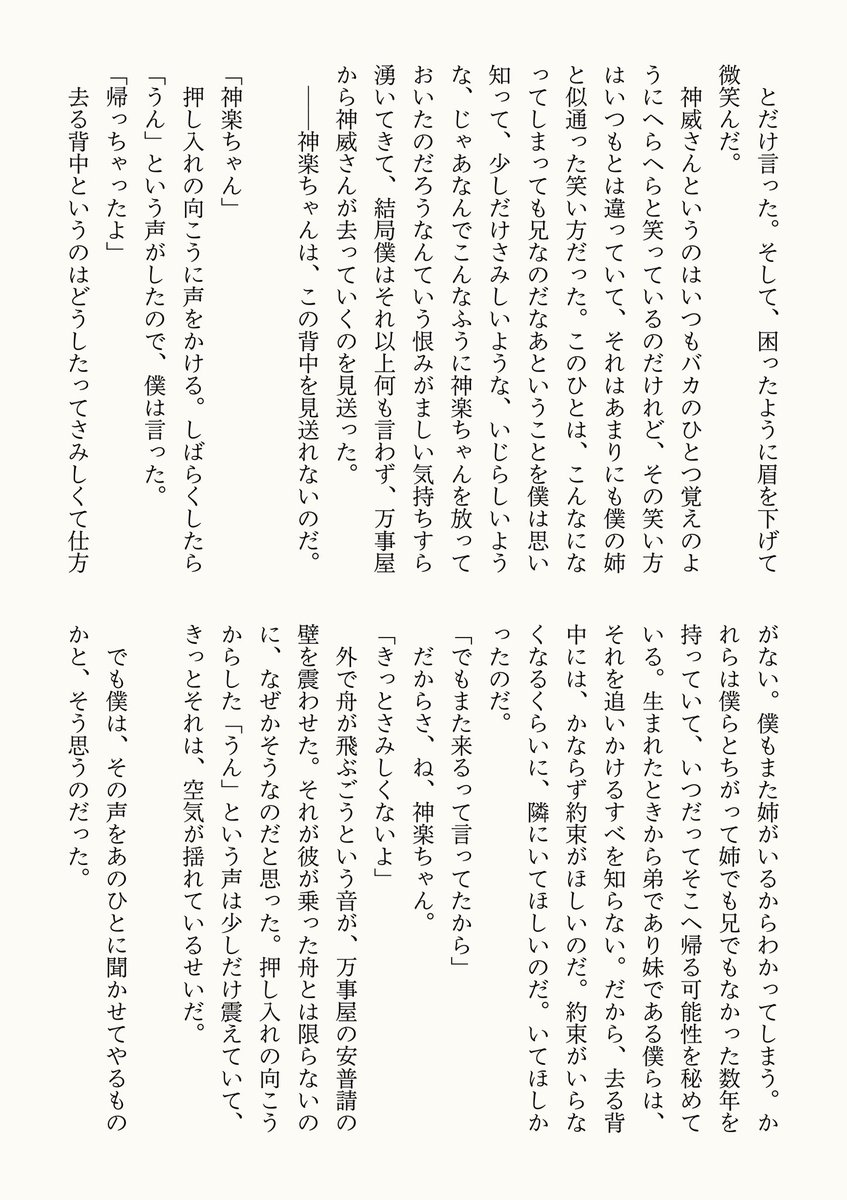 とだけ言った。そして、困ったように眉を下げて
微笑んだ。
　神威さんというのはいつもバカのひとつ覚えのよ
うにへらへらと笑っているのだけれど、その笑い方
はいつもとは違っていて、それはあまりにも僕の姉
と似通った笑い方だった。このひとは、こんなにな
ってしまっても兄なのだなあということを僕は思い
知って、少しだけさみしいような、いじらしいよう
な、じゃあなんでこんなふうに神楽ちゃんを放って
おいたのだろうなんていう恨みがましい気持ちすら
湧いてきて、結局僕はそれ以上何も言わず、万事屋
から神威さんが去っていくのを見送った。
　――神楽ちゃんは、この背中を見送れないのだ。
「神楽ちゃん」
　押し入れの向こうに声をかける。しばらくしたら
「うん」という声がしたので、僕は言った。
「帰っちゃったよ」
　去る背中というのはどうしたってさみしくて仕方
がない。僕もまた姉がいるからわかってしまう。か
れらは僕らとちがって姉でも兄でもなかった数年を
持っていて、いつだってそこへ帰る可能性を秘めて
いる。生まれたときから弟であり妹である僕らは、
それを追いかけるすべを知らない。だから、去る背
中には、かならず約束がほしいのだ。約束がいらな
くなるくらいに、隣にいてほしいのだ。いてほしか
ったのだ。
「でもまた来るって言ってたから」
　だからさ、ね、神楽ちゃん。
「きっとさみしくないよ」
　外で舟が飛ぶごうという音が、万事屋の安普請の
壁を震わせた。それが彼が乗った舟とは限らないの
に、なぜかそうなのだと思った。押し入れの向こう
からした「うん」という声は少しだけ震えていて、
きっとそれは、空気が揺れているせいだ。
　でも僕は、その声をあのひとに聞かせてやるもの
かと、そう思うのだった。